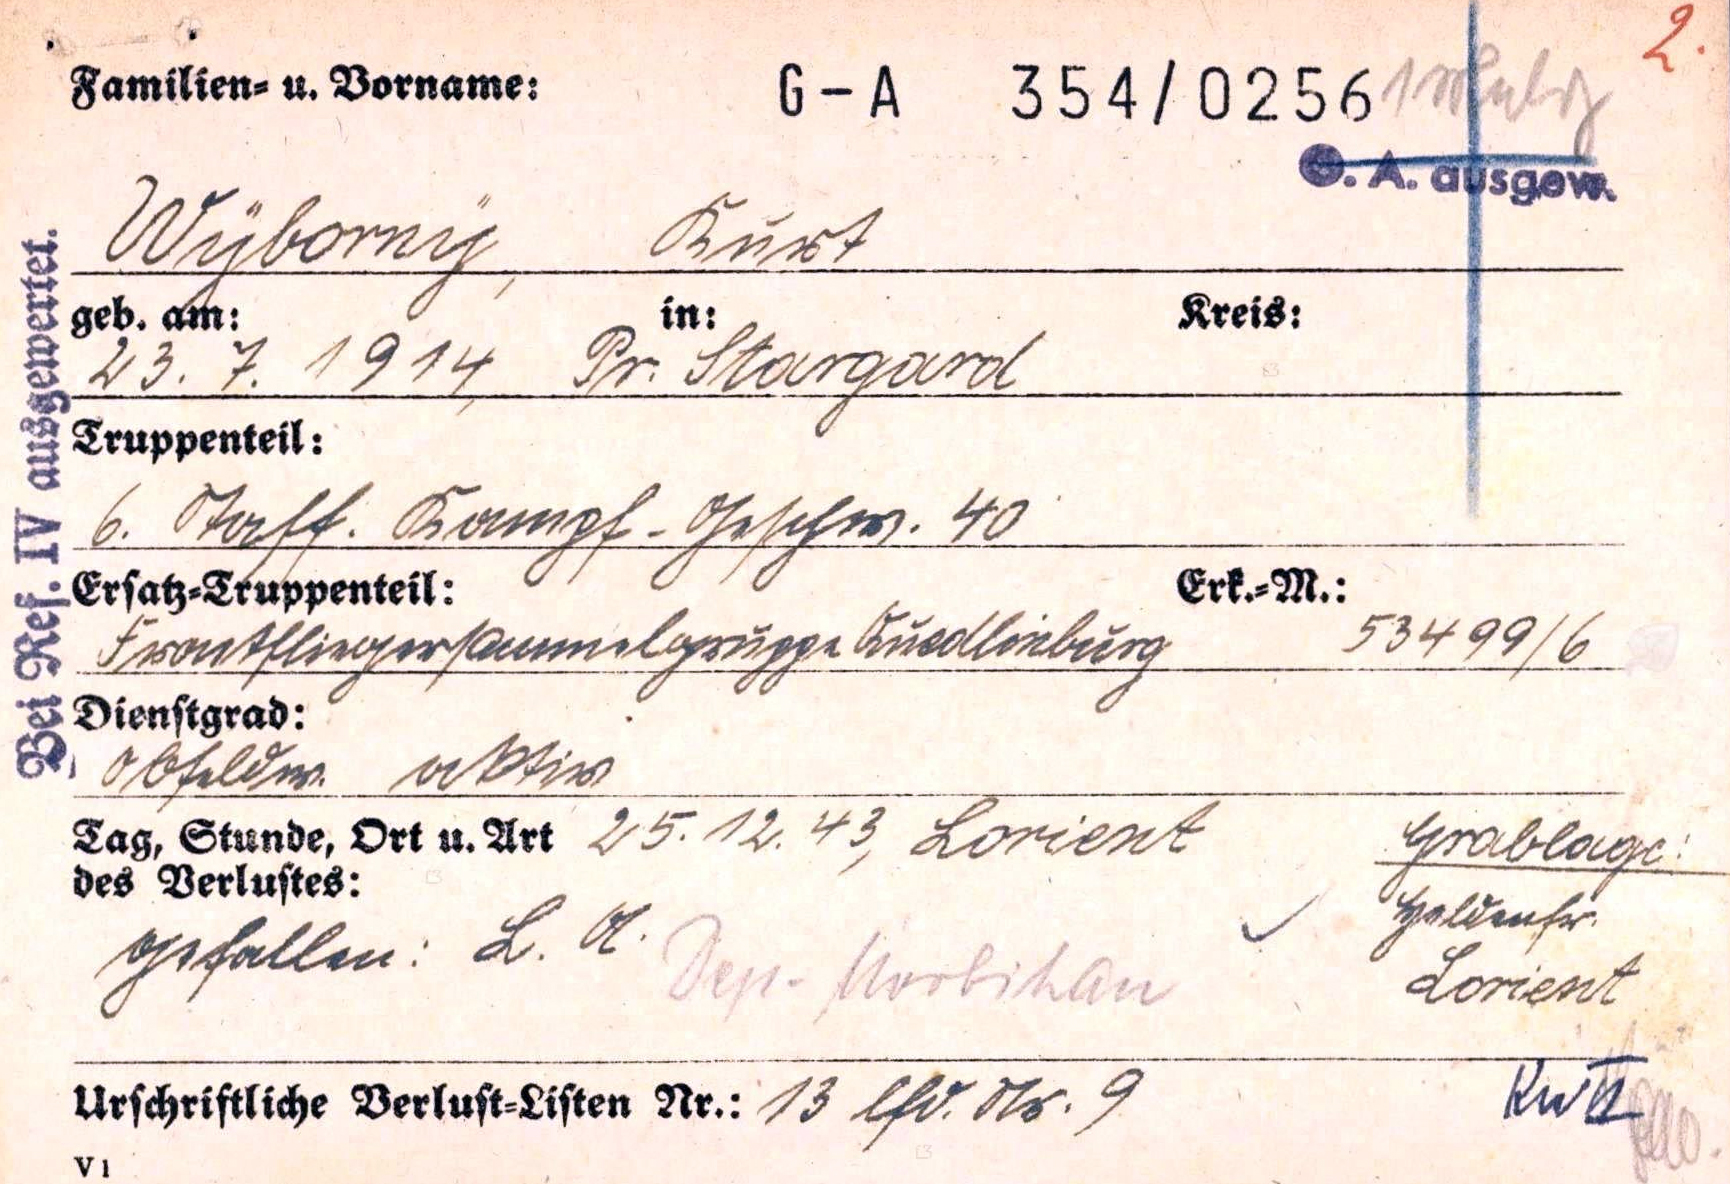 2.
Familien- u. Vorname: G-A 354/0256
G. A. ausgew.
Wÿbornÿ, Kurt
geb. am: in: Kreis:
23. 7. 1914, Pr. Stargard
Truppenteil:
6. Staff. Kampf-Geschw. 40
Ersatz-Truppenteil: Erk.-M.:
Frontfliegersammelgruppe Quedlinburg 53499/6
Dienstgrad:
Obfeldw. aktiv
Tag, Stunde, Ort u. Art 25.12.43, Lorient Grablage:
des Verlustes: Heldenfr.
gefallen: L. A. Dep. Morbihan Lorient
Urschriftliche Verlust-Listen Nr.: 13 lfd. Nr. 9
V 1
Bei Ref. IV ausgewertet.